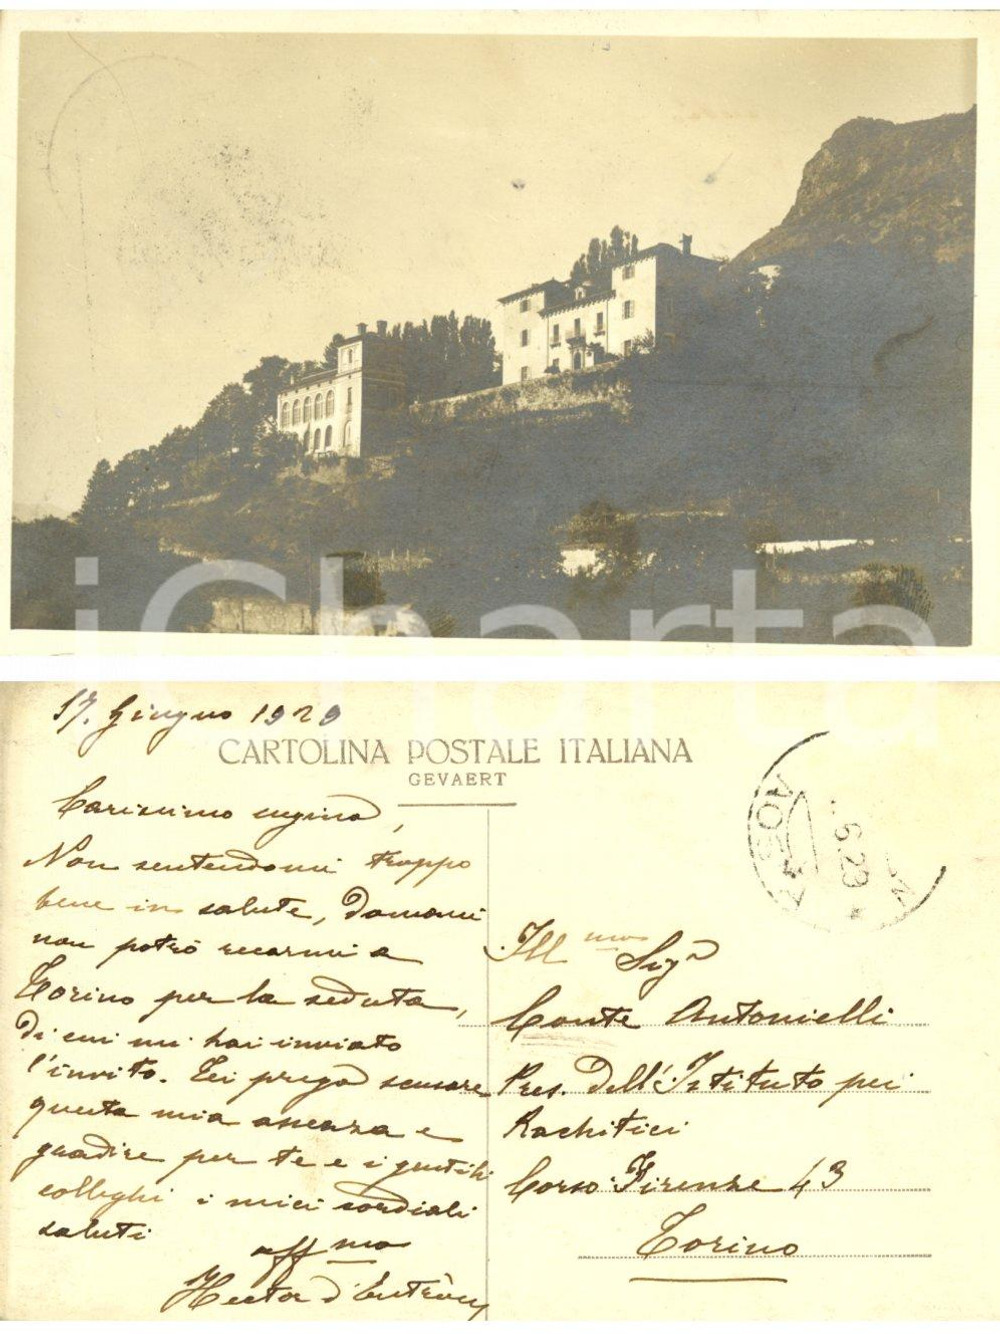 iCharta
17. Giugno 1929
CARTOLINA POSTALE ITALIANA
GEVAERT
Carissimo cugino,
Non sentendomi troppo
bene in salute, domani
non potrò recarmi a
Torino per la seduta,
di cui mi hai inviato
l'invito. Ti prego scusare
questa mia assenza e
gradire per te e i gentili
colleghi i miei cordiali
saluti
aff mo
Hector d'Entrèves
AOSTA
6.29
Ill mo Sigr
Conte Antonielli
Pres. dell'Istituto pei
Rachitici
Corso Firenze 43
Torino